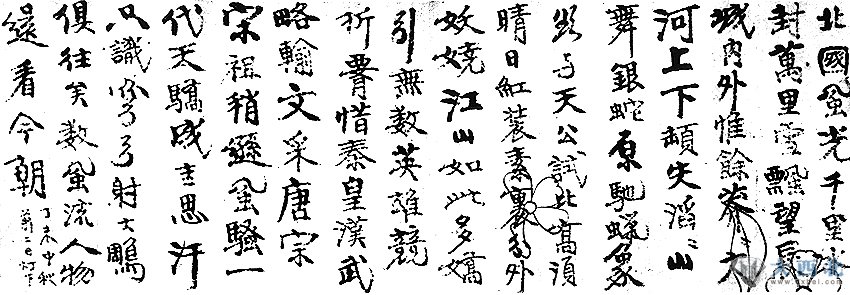 北國風光千里冰
封萬里雪飄望長
城内外惟餘莽〻大
河上下頓失滔〻山
舞銀蛇原馳蠟象
欲与天公試比高須
晴日紅裝素裹分外
妖嬈江山如此多嬌
引無数英雄競
折腰惜秦皇漢武
略輸文采唐宗
宋祖稍遜風騷一
代天驕成吉思汗
只識彎弓射大鵰
俱往矣数風流人物
還看今朝
丁未中秋
前二日灯下